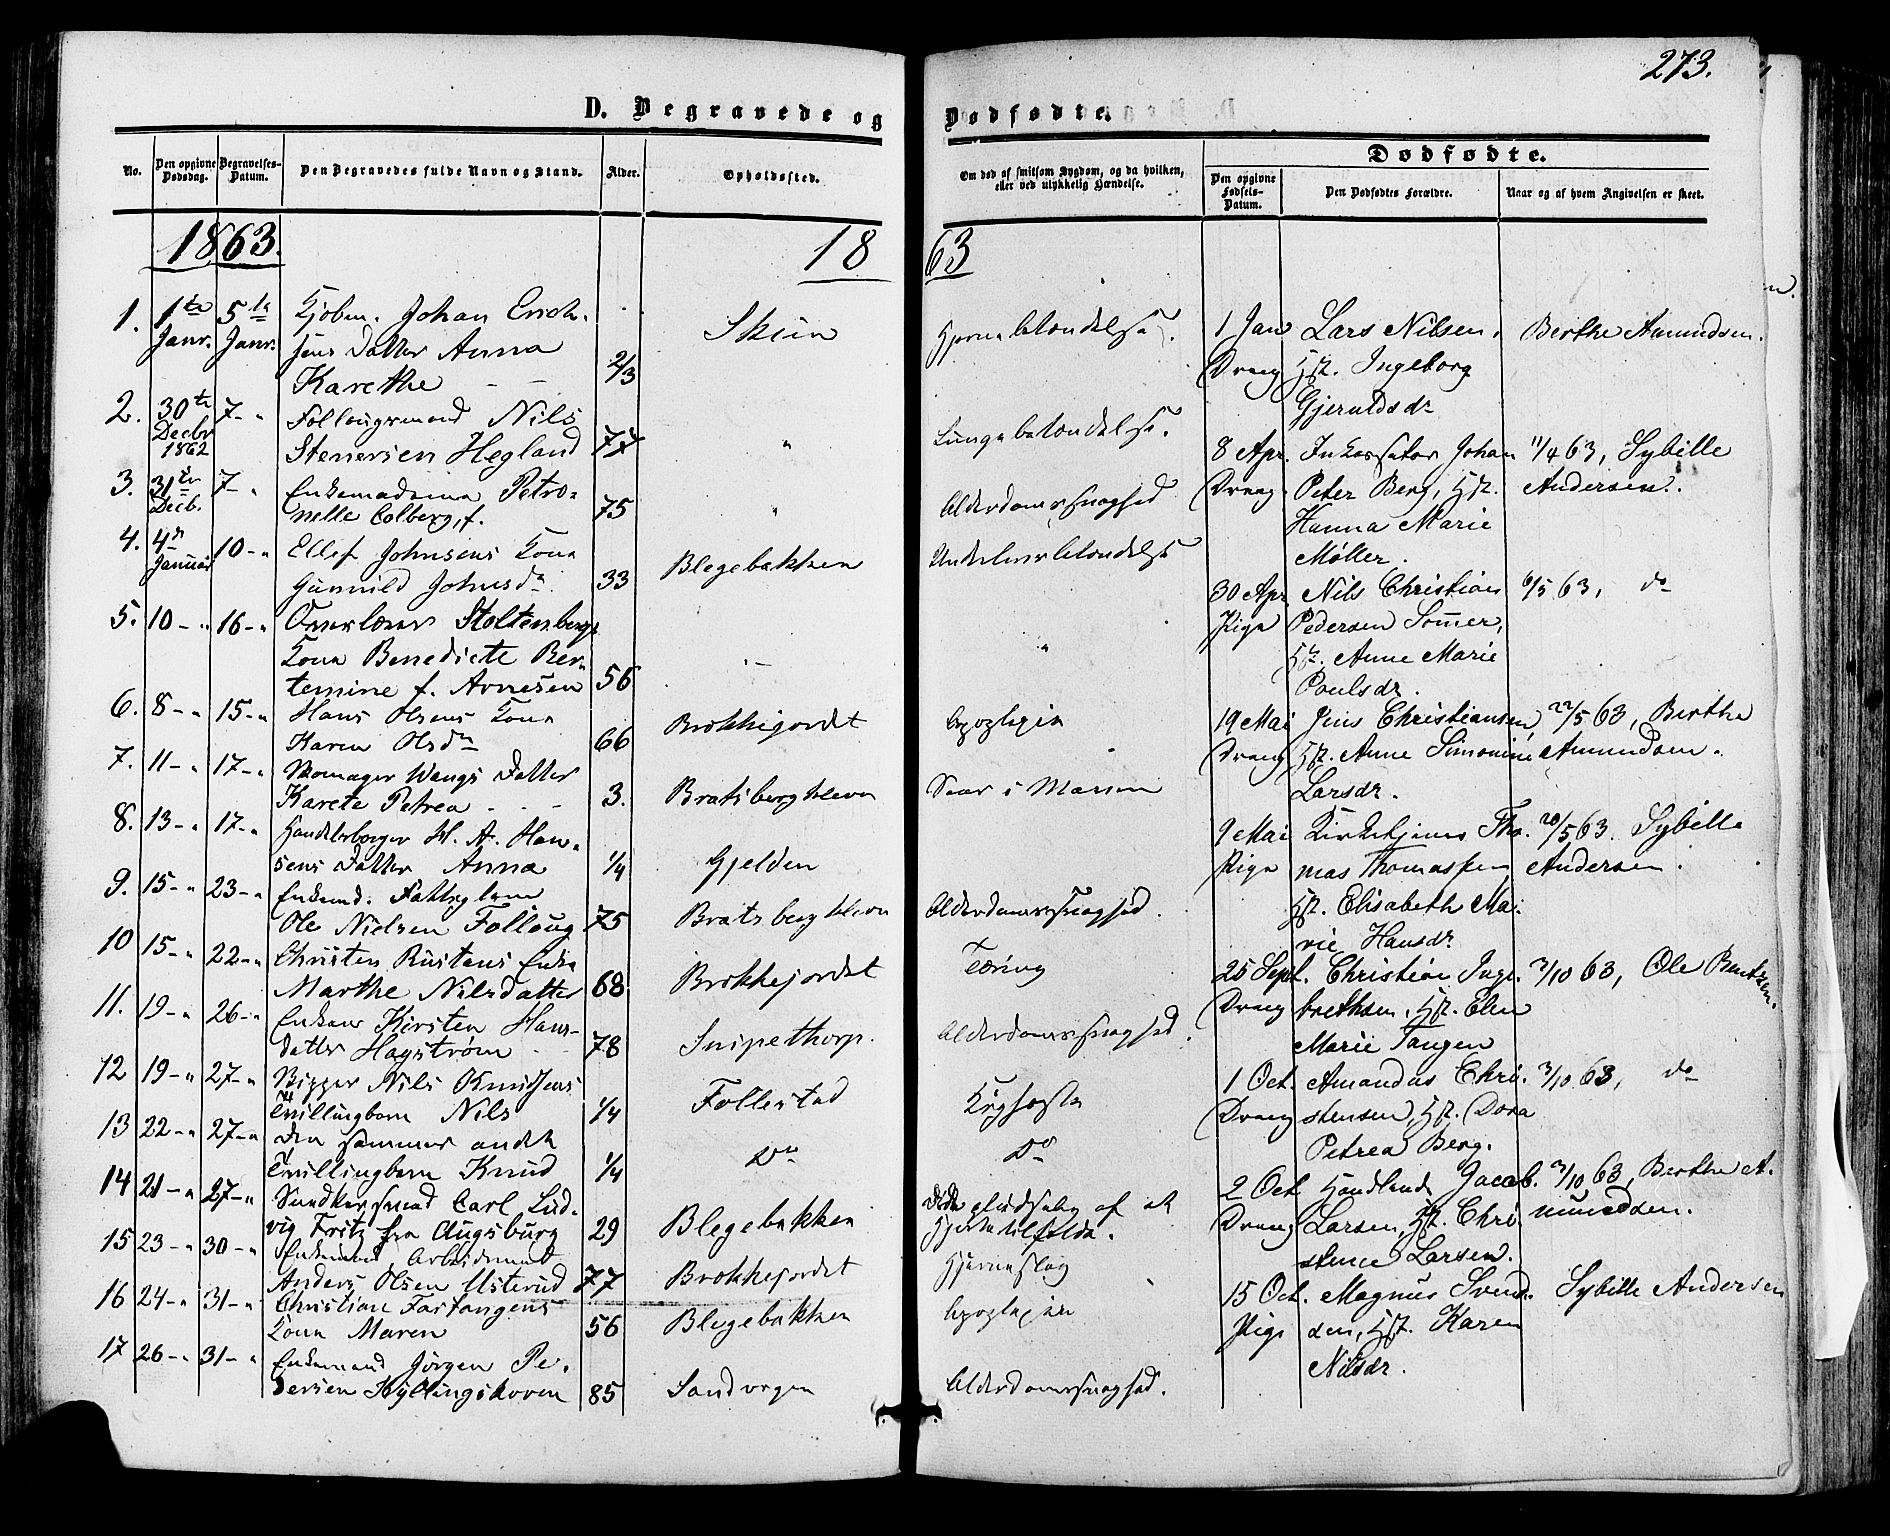 273.
D. Begravede og Dødfødte.
No.
Den opgivne Dødsdag.
Begravelses-Datum.
Den Begravedes fulde Navn og Stand.
Alder.
Opholdssted.
Om død af smitsom Sygdom, og da hvilken, eller ved ulykkelig Hændelse.
Dødfødte.
Den opgivne Fødsels-Datum.
Den Dødfødtes Forældre.
Naar og af hvem Angivelsen er skeet.
1863.
18 63
1. 1te Janr. 5te Janr. Kjøbm. Johan Erich-
sens Datter Anna
Karethe 2/3 Skien Hjernebetændelse.
2. 30te Decbr 1862 7-" Follougsmand Nils
Stenersen Hegland 77 " Lungebetændelse.
3. 31te Decb. 7-" Enkemadame Petro-
nelle Colberg, f. 75 " Alderdomssvaghed
4. 4de Januar 10-" Ellef Johnsens Kona
Gunnild Johnsdr 33 Blegebakken Underlivsbetændelse
5. 10-" 16-" Stoltenbergs
Kona Benedicte Ber-
temine f. Arnesen 56 "
6. 8-" 15-" Hans Olsens Kona
Karen Olsdr 66 Brekkejordet Apoplexia
7. 11-" 17-" Skomager Wangs Datter
Karete Petrea 3. Bratsbergkleven Saar i Maven
8. 13-" 17-" Handelsborger H. A. Han-
sens Datter Anna 1/4 Gjelden
9. 15-" 23-" Enkemd. Fattiglem
Ole Nielsen Follaug 75 Bratsbergkleven Alderdomssvaghed.
10 15-" 22-" Christen Rustens Enke
Marthe Nilsdatter 68. Brekkejordet Tæring
11. 19-" 26-" Enken Kirsten Hans-
datter Hagstrøm 78 Snipethorp. Alderdomssvaghed.
12 19-" 27-" Bygger Nils Knudsens
Tvillingbarn Nils 1/4 Follestad Kighoste
13 22-" 27-" den sammes andet
Tvillingbarn Knud 1/4 Do Do
14 21-" 27-" Carl Lud-
vig Fritz fra Augsburg 29 Blegebakken af et
Hjertetilfælde.
15 23-" 30-" Enkemand Arbeidsmand
Anders Olsen Usterud 77 Brekkejordet Hjerneslag
16 24-" 31-" Christian Fartangens
Kona Maren 56 Blegebakken Apoplexien
17 26-" 31-" Enkemand Jørgen Pe-
dersen Kyllingskoven 85 Sandvegen Alderdomssvaghed.
1 Jan Lars Nilsen, Berthe Amundsen.
Dreng Hst. Ingeborg
Gjeruldsdr
8 Apr. Inkassator Johan 11/4 63, Sybille
Dreng Peter Berg, Hst. Andersen.
Hanna Marie
Møller.
30 Apr Nils Christian 6/5 63, do
Pige Pedersen Sømer,
Hst. Anne Marie
Poulsdr.
19 Mai Jens Christiansen, 22/5 63, Berthe
Dreng Hst. Anne Simonine Amundsen.
Larsdr.
9 Mai Kirketjener Tho- 20/5 63. Sybille
Pige mas Thomassen Andersen.
Hst. Elisabeth Ma-
rie Hansdr.
25 Sept. Christian Inge- 3/10 63, Ole Bentzen.
Dreng brethsen, Hst. Elen
Marie Tangen
1 Oct. Amandus Chri- 3/10 63, do
Dreng stensen, Hst. Dora
Petrea Berg.
2 Oct Jacob 3/10 63, Berthe A-
Dreng Larsen, Hst. Chri- mundsen.
stence Larsen.
15 Oct. Magnus Svend- Sybille Andersen
Pige sen, Hst. Karen
Nilsdr.